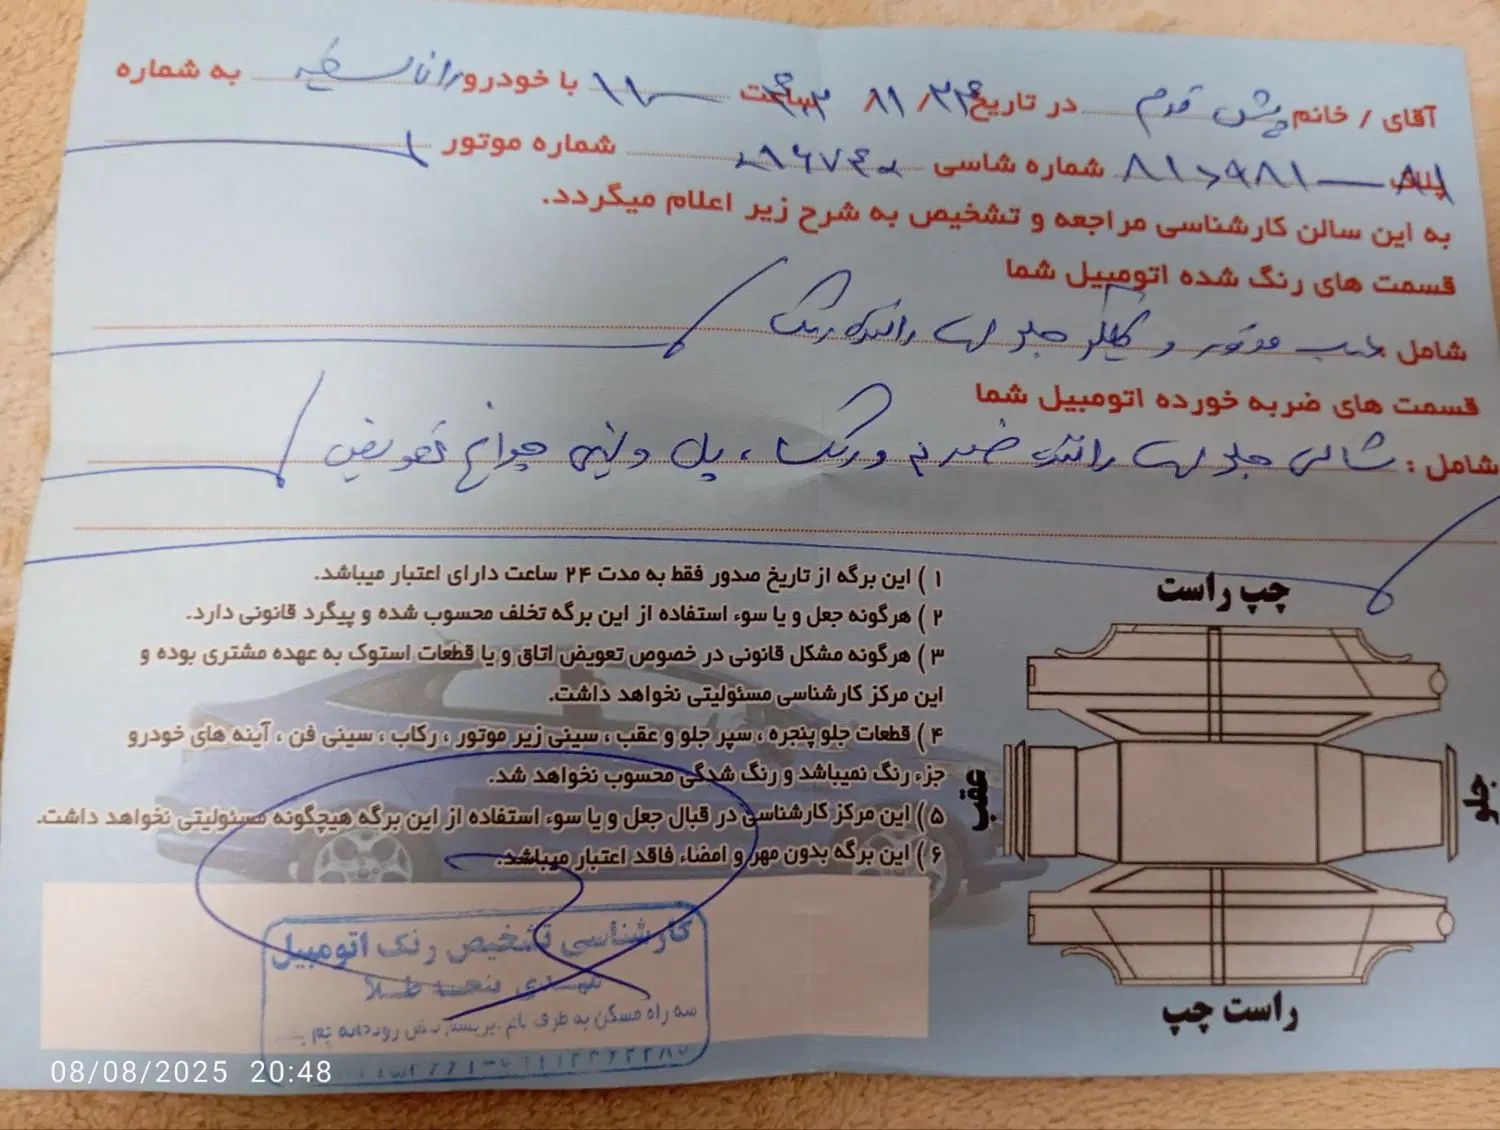 آقای / خانم پیش قدم در تاریخ ساعت ۱۱ با خودرو رانا سفید به شماره
پلاک شماره شاسی شماره موتور
به این سالن کارشناسی مراجعه و تشخیص به شرح زیر اعلام میگردد.
قسمت های رنگ شده اتومبیل شما
شامل درب موتور و گلگیر جلو سمت راننده رنگ
قسمت های ضربه خورده اتومبیل شما
شامل : شاسی جلو سمت راننده ضربه و رنگ ، پل و سینی چراغ تعویض
۱ ) این برگه از تاریخ صدور فقط به مدت ۲۴ ساعت دارای اعتبار میباشد.
۲ ) هرگونه جعل و یا سوء استفاده از این برگه تخلف محسوب شده و پیگرد قانونی دارد.
۳ ) هرگونه مشکل قانونی در خصوص تعویض اتاق و یا قطعات استوک به عهده مشتری بوده و
این مرکز کارشناسی مسئولیتی نخواهد داشت.
۴ ) قطعات جلو پنجره ، سپر جلو و عقب ، سینی زیر موتور ، رکاب ، سینی فن ، آینه های خودرو
جزء رنگ نمیباشد و رنگ شدگی محسوب نخواهد شد.
۵ ) این مرکز کارشناسی در قبال جعل و یا سوء استفاده از این برگه هیچگونه مسئولیتی نخواهد داشت.
۶ ) این برگه بدون مهر و امضاء فاقد اعتبار میباشد.
چپ راست
جلو
عقب
راست چپ
کارشناسی تشخیص رنگ اتومبیل
پنجه طلا
سه راه مسکن به طرف
08/08/2025 20:48